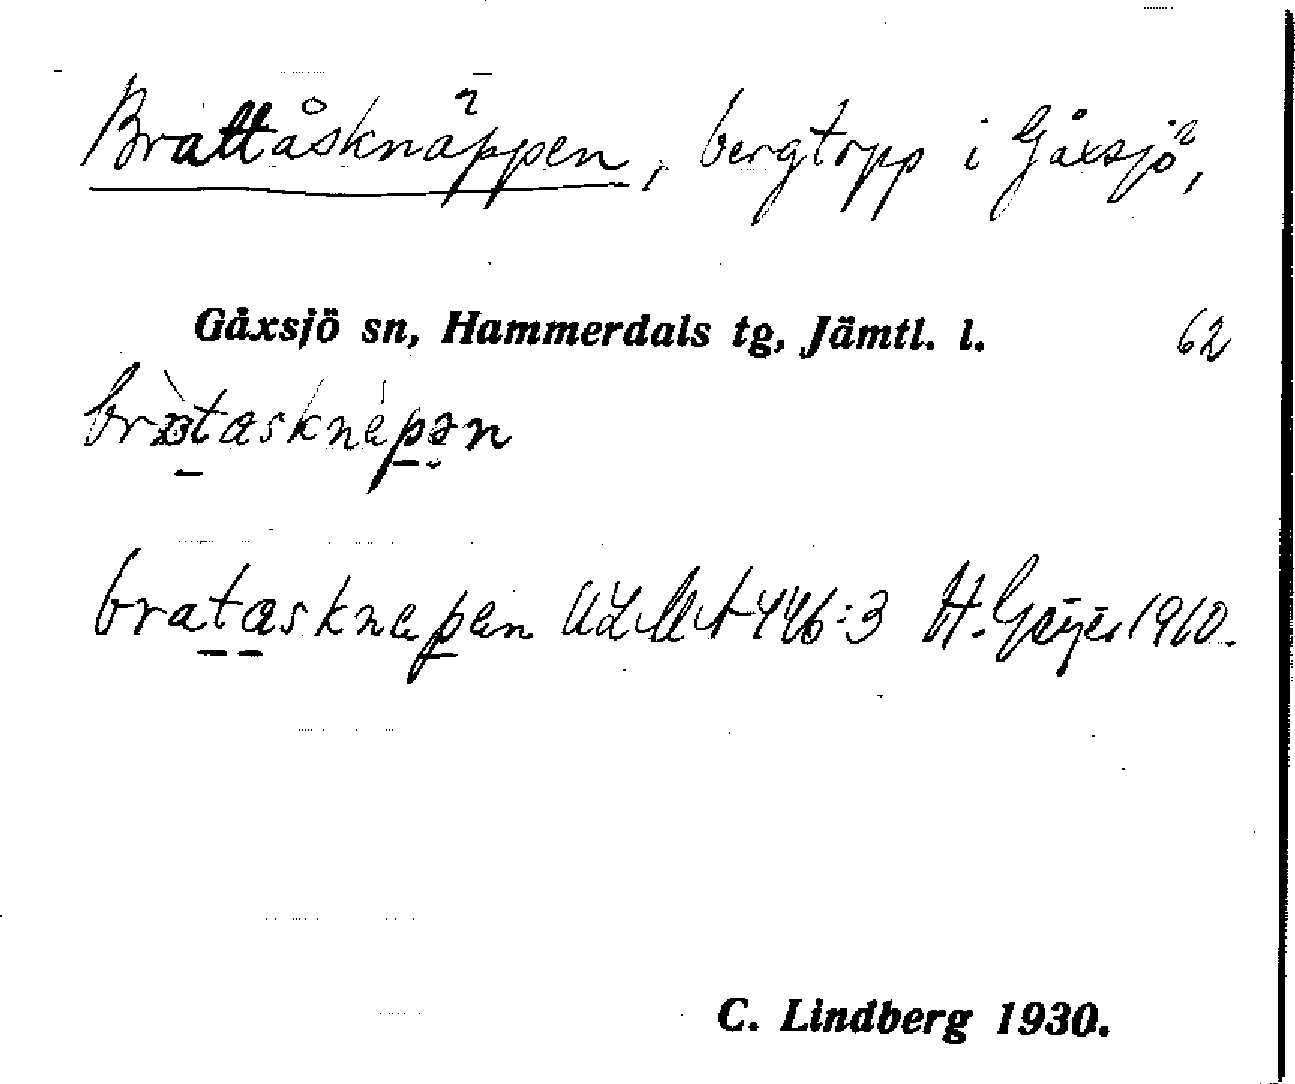 Brattåsknäppen, bergtopp i Gåxsjö,
Gåxsjö sn, Hammerdals tg, Jämtl. l.
62
bratasknäpən
bratasknepen ULMA 446:3 H. Geijer 1910.
C. Lindberg 1930.